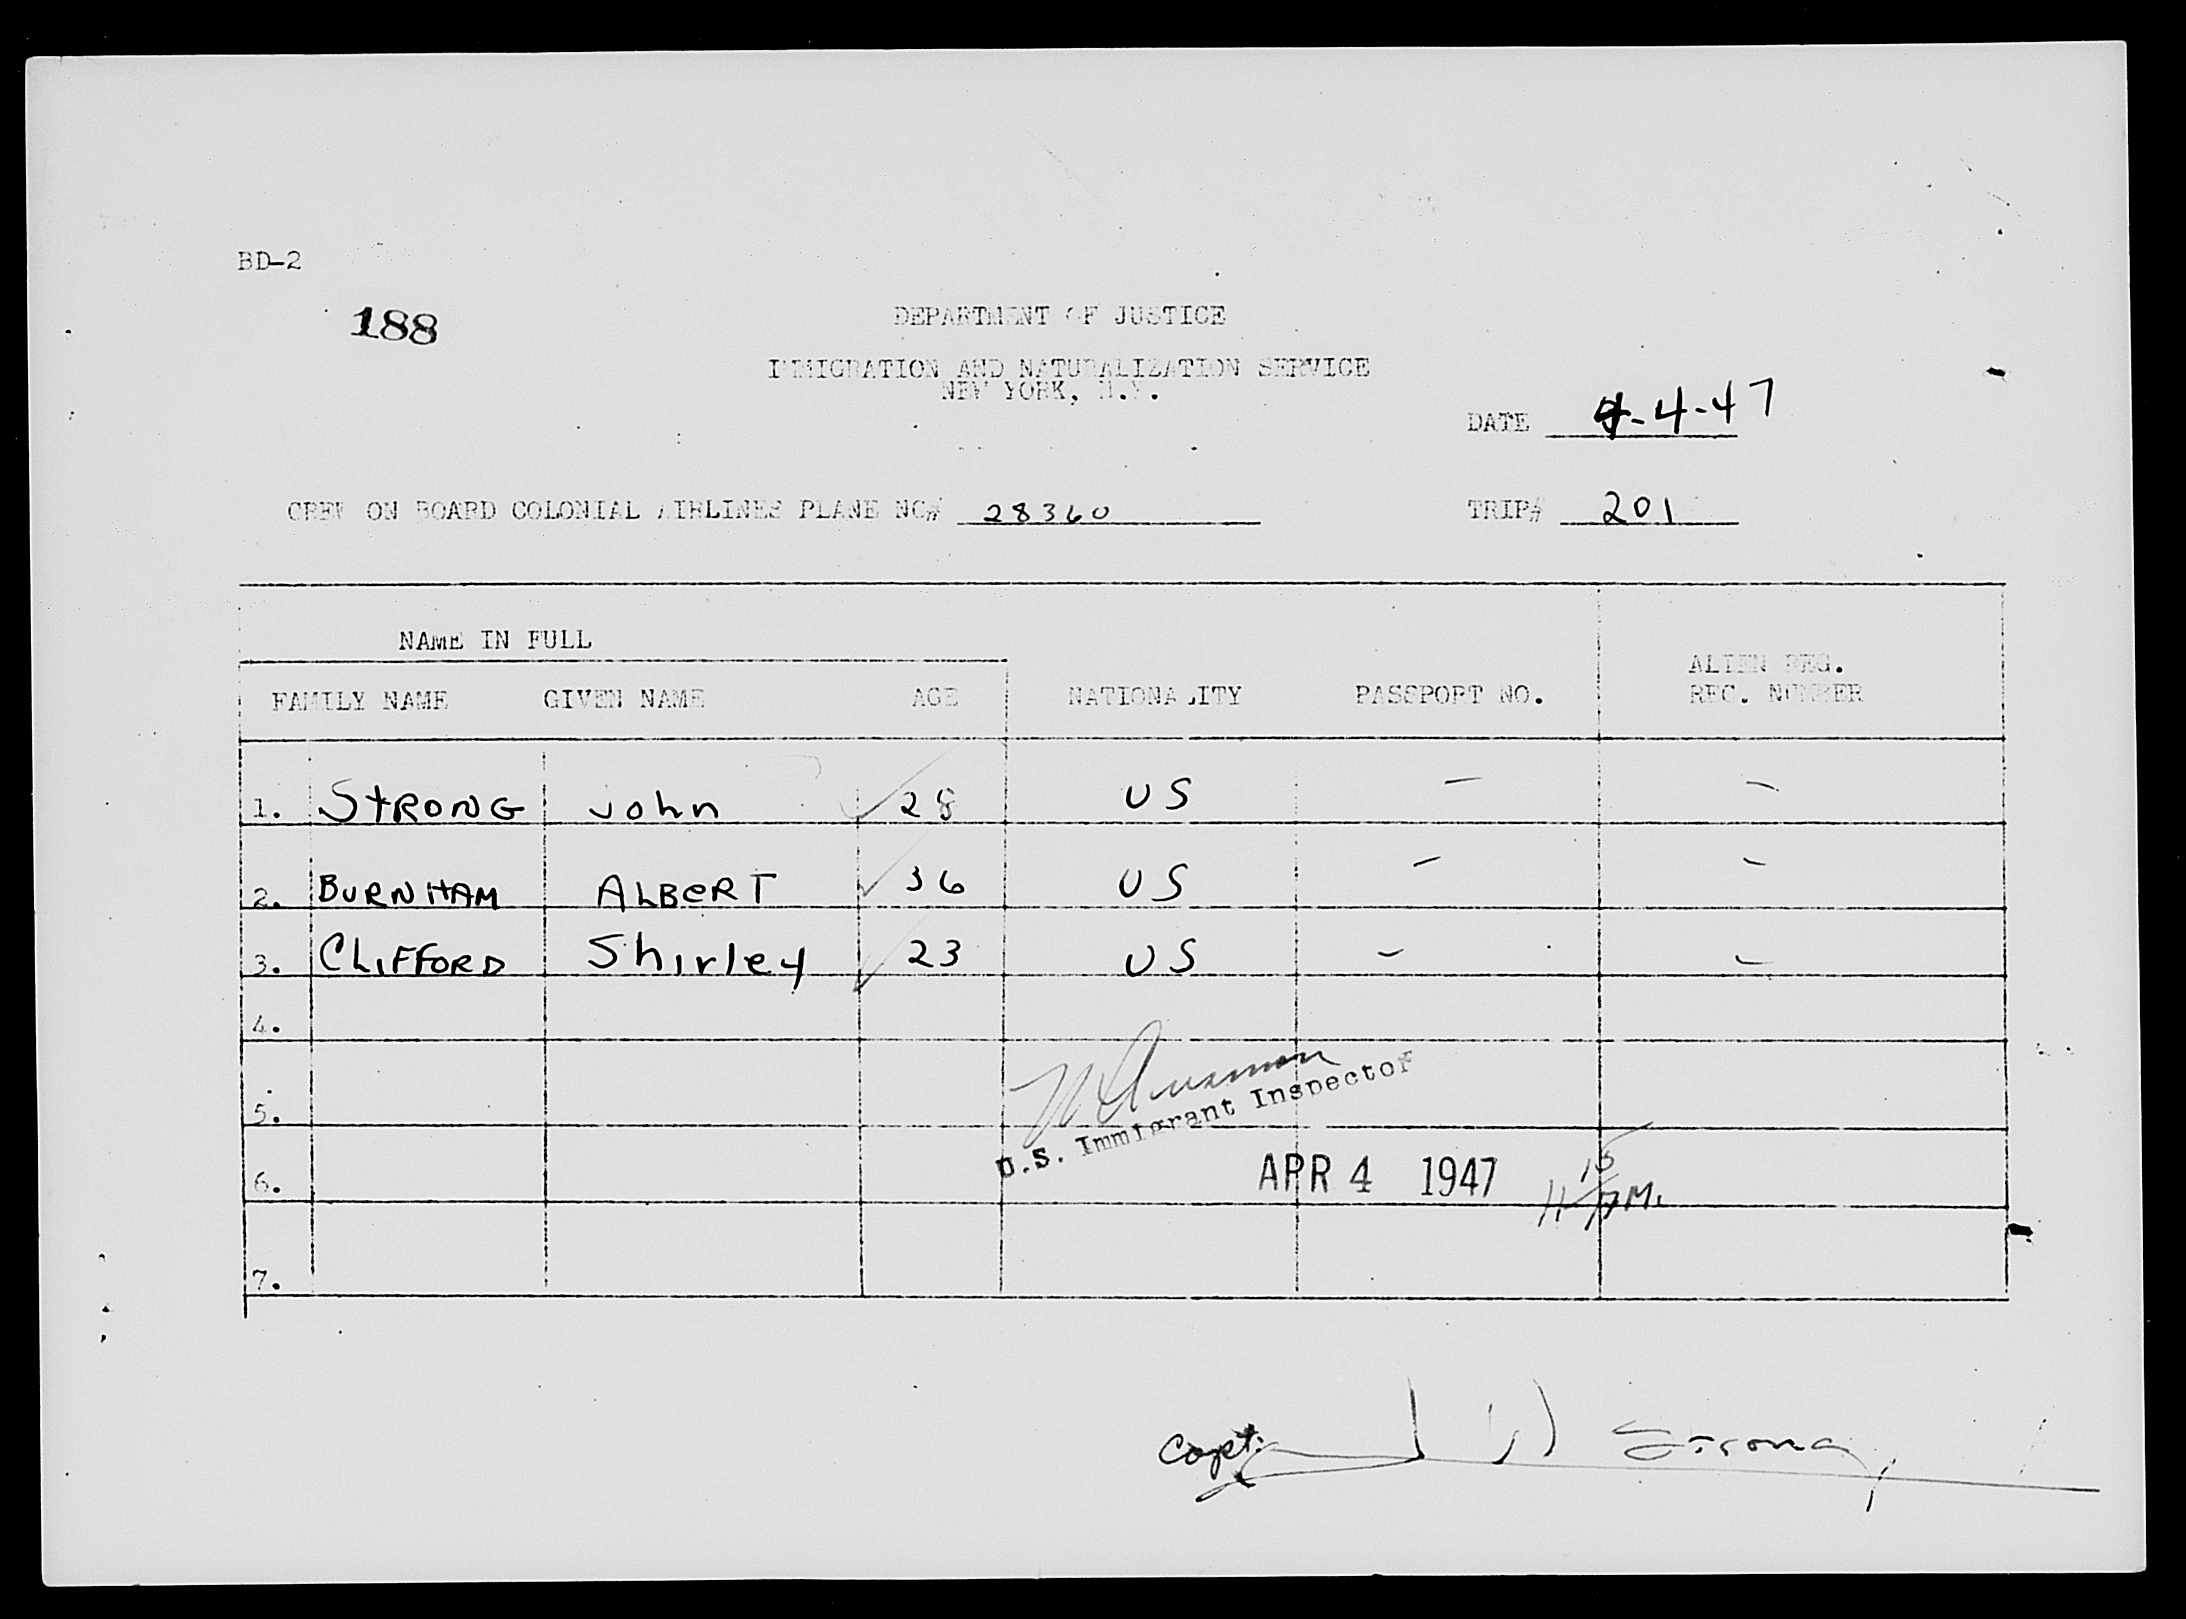 BD-2
188
DEPARTMENT OF JUSTICE
IMMIGRATION AND NATURALIZATION SERVICE
NEW YORK, N.Y.
DATE 4-4-47
CREW ON BOARD COLONIAL AIRLINES PLANE NO# 28360 TRIP# 201
NAME IN FULL
ALIEN REG.
FAMILY NAME GIVEN NAME AGE NATIONALITY PASSPORT NO. REC. NUMBER
1. STRONG John 28 US - -
2. BURNHAM ALBERT 36 US - -
3. CLIFFORD Shirley 23 US - -
4.
5.
U.S. Immigrant Inspector
6. APR 4 1947 11 15
7.
Capt. J W Strong